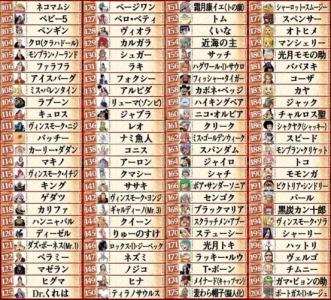 103 ネコマムシ
104 ベビー5
105 ペンギン
106 クロ(クラハドール)
107 モンブラン・ノーランド
108 ファウスト
107 アイスバーグ
108 ミス・バレンタイン
109 ラブーン
110 キュロス
111 ヴィンスモーク・ニジ
112 パッチー
113 カーリー・ダダン
114 マキノ
115 ヴィンスモーク・イチジ
116 キング
117 ゲダツ
118 カリファ
119 ハンニャバル
120 ディーゼル
121 ダズ・ボーネス(Mr.1)
122 ベラミー
123 マゼラン
124 ヒグマ
Dr.くれは
126 ページワン
127 ベロ・ベティ
128 ヴィオラ
129 カルガラ
130 シュガー
131 ケイミー
132 フォクシー
133 アルビダ
リューマ(ゾンビ)
135 ジャブラ
136 レオ
ナミ魚人
138 コニス
139 アーロン
140 クマシー
141 ササキ
142 ヴィンスモーク・ヨンジ
ギャルディーノ(Mr.3)
144 タイガー
りゅーのすけ
146 ロックス・D・ジーベック
147 ネズミ
148 ノジコ
149 ヒナ
150 ティラノサウルス
151 霜月康イエ(トの康)
152 トム
くいな
154 近海の主
155 サッチ
156 ハグワール・D・サウロ
157 フィッシャー・タイガー
158 カポネ・ベッジ
159 ハイキングベア
160 ニコ・オルビア
161 クリーク
162 ミス・ゴールデンウィーク
163 スパンダム
164 ジャイロ
165 シャチ
166 ボア・サンダーソニア
167 センゴク
168 ブラックマリア
169 スクラッチメン・アプー
170 ステューシー
171 光月トキ
172 ラッキー・ルウ
173 T・ボーン
174 メイナード
175 麦わら帽子(擬人化)
176 シャーロット・スムージー
177 スペンサー
178 オトヒメ
179 マンシェリー
180 光月モモの助
181 パパスネ
182 コーザ
183 カヤ
184 ジャック
185 チャルロス聖
186 ゲッコー・モリア
187 スピード
188 モンブラン・クリケット
189 トコ
190 モモンガ
191 ビクトリア・シンドリー
192 パール
黒炭カン十郎
ヴィンスモーク・ソラ
ハットリ
197 ヴェルゴ
198 チムニー
ガマ・ピョンの助